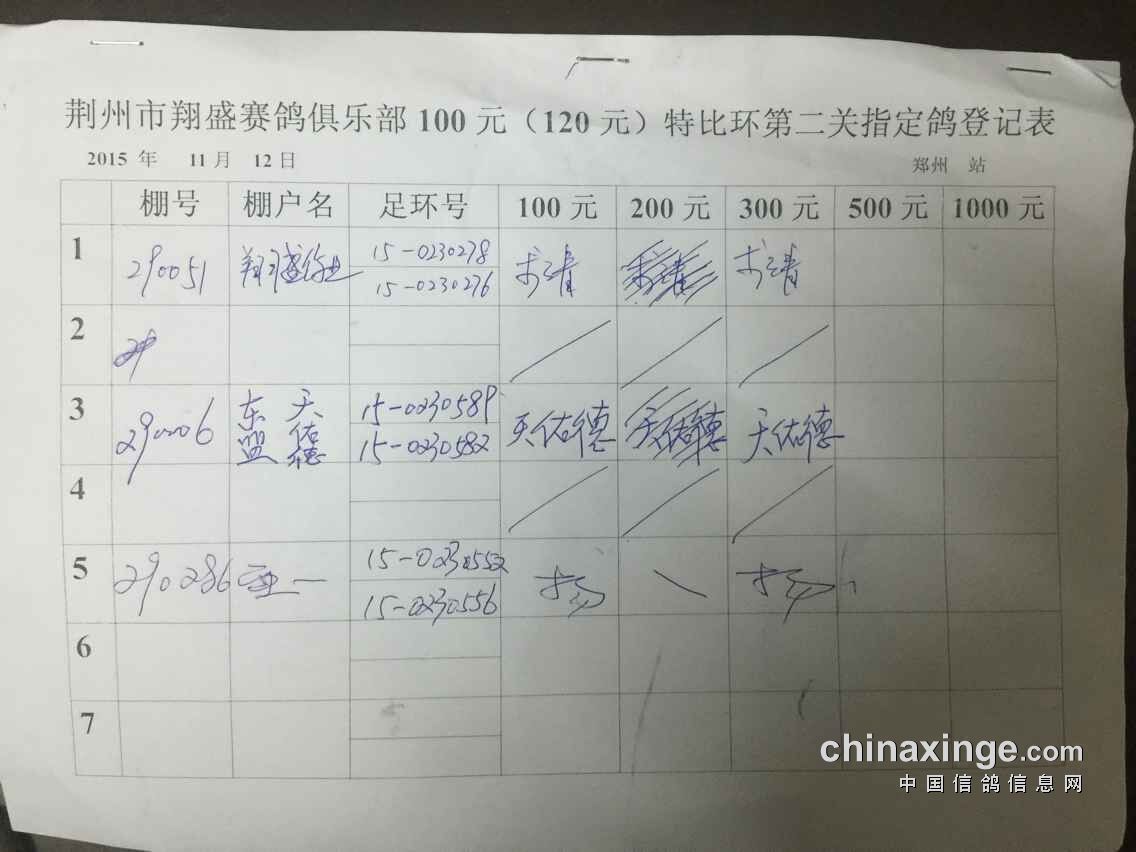 荆州市翔盛赛鸽俱乐部100元（120元）特比环第二关指定鸽登记表
2015 年 11月 12日 郑州 站
棚号 棚户名 足环号 100元 200元 300元 500元 1000元
1
15-0230278
290051 翔盛
15-0230276
2
3
290006 东盟 天佑德
15-0230589
天佑德 天佑德 天佑德
15-0230582
4
5
290286 一
15-0230552
15-0230556
6
7
chinaxinge.com
中国信鸽信息网